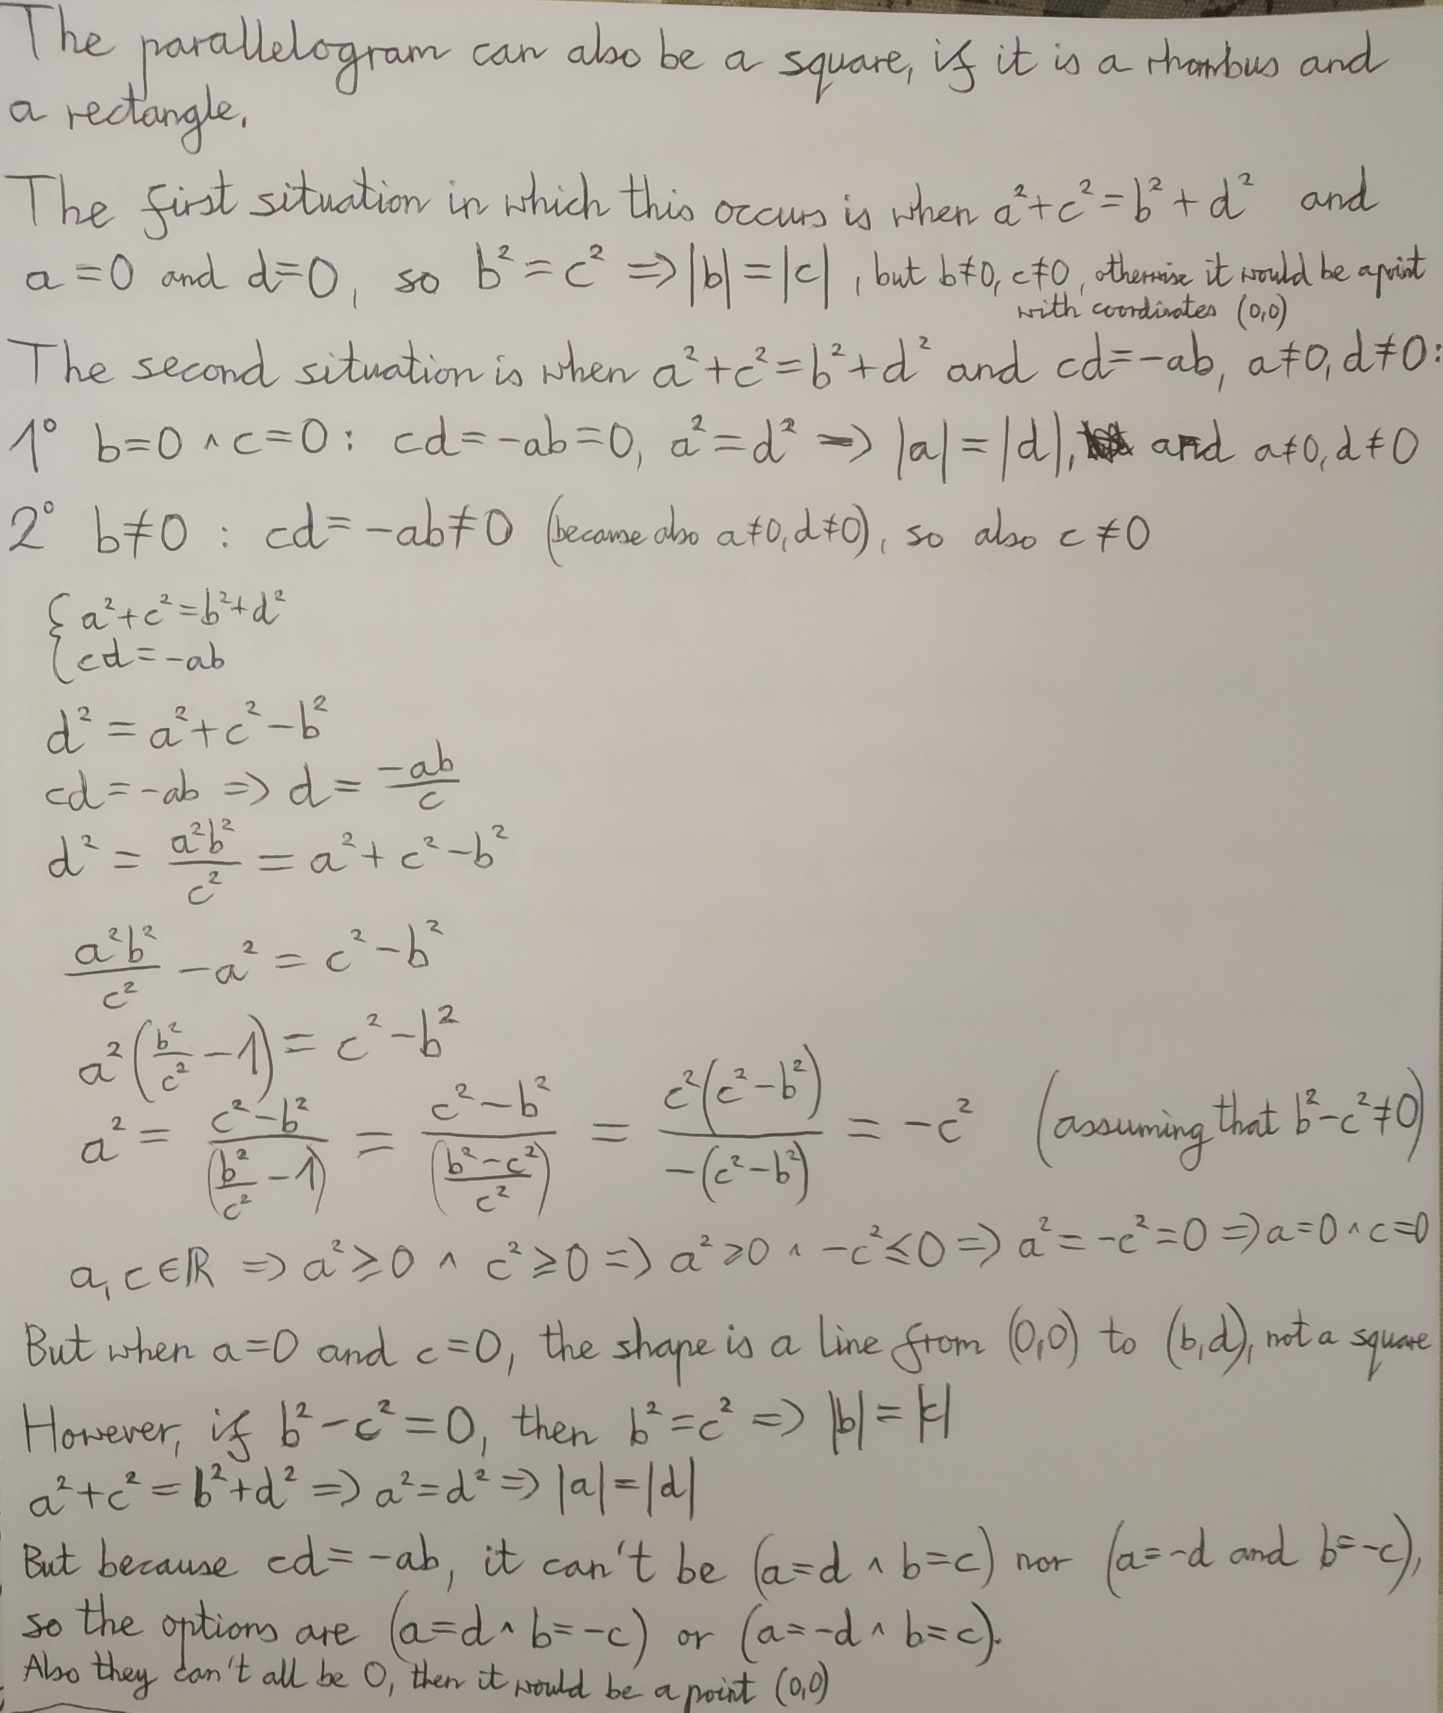 The parallelogram can also be a square, if it is a rhombus and
a rectangle.
The first situation in which this occurs is when a²+c²=b²+d² and
a=0 and d=0, so b²=c² => |b|=|c|, but b≠0, c≠0, otherwise it would be a point
with coordinates (0,0)
The second situation is when a²+c²=b²+d² and cd=-ab, a≠0, d≠0:
1° b=0 ∧ c=0: cd=-ab=0, a²=d² => |a|=|d|, and a≠0, d≠0
2° b≠0 : cd=-ab≠0 (because also a≠0, d≠0), so also c≠0
{ a²+c²=b²+d²
{ cd=-ab
d²=a²+c²-b²
cd=-ab => d=\frac{-ab}{c}
d²=\frac{a²b²}{c²}=a²+c²-b²
\frac{a²b²}{c²}-a²=c²-b²
a²(\frac{b²}{c²}-1)=c²-b²
a²=\frac{c²-b²}{(\frac{b²}{c²}-1)}=\frac{c²-b²}{(\frac{b²-c²}{c²})}=\frac{c²(c²-b²)}{-(c²-b²)}=-c² (assuming that b²-c²≠0)
a,c∈ℝ => a²≥0 ∧ c²≥0 => a²≥0 ∧ -c²≤0 => a²=-c²=0 => a=0 ∧ c=0
But when a=0 and c=0, the shape is a line from (0,0) to (b,d), not a square
However, if b²-c²=0, then b²=c² => |b|=|c|
a²+c²=b²+d² => a²=d² => |a|=|d|
But because cd=-ab, it can't be (a=d ∧ b=c) nor (a=-d and b=-c),
so the options are (a=d ∧ b=-c) or (a=-d ∧ b=c).
Also they can't all be 0, then it would be a point (0,0)